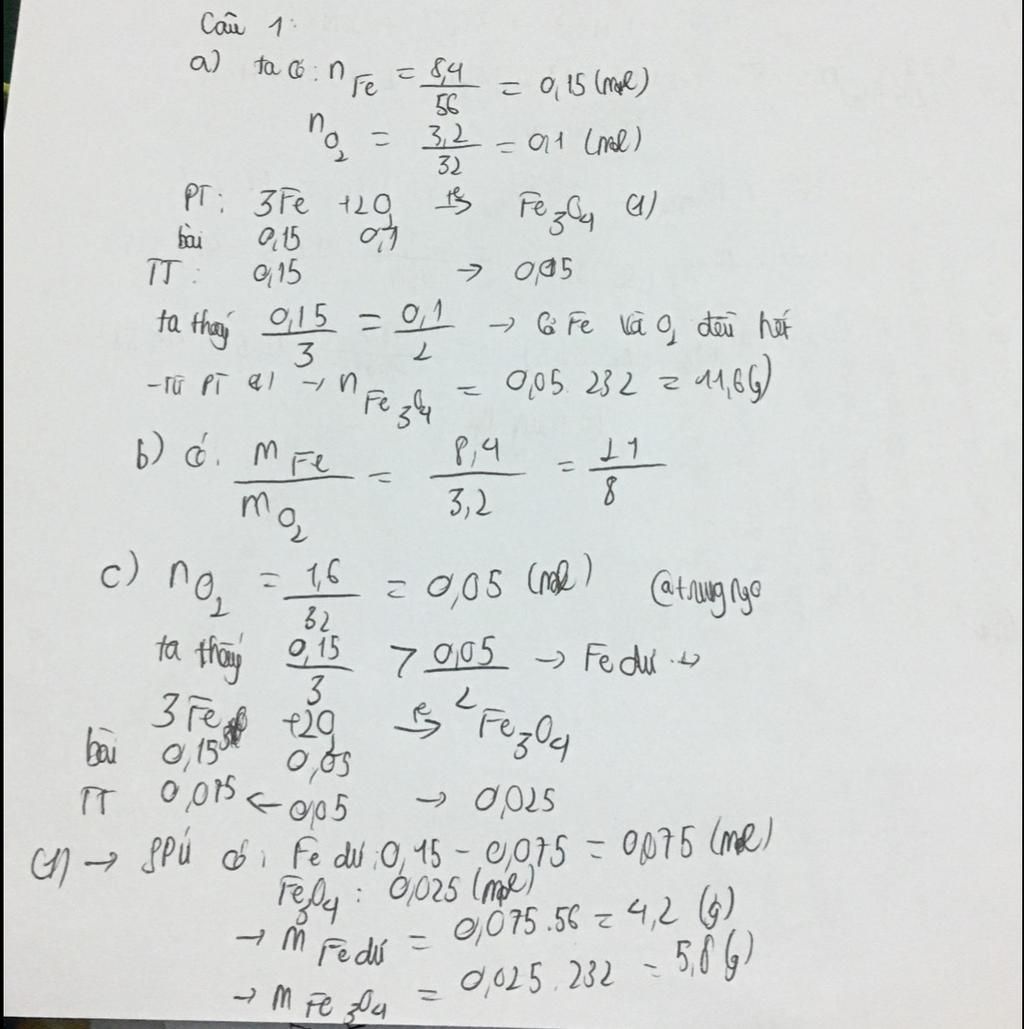 Câu 1:
a) ta có: n Fe = 8,4/56 = 0,15 (mol)
n O2 = 3,2/32 = 0,1 (mol)
PT: 3Fe +2O2 t°→ Fe3O4 (1)
bài 0,15 0,1
TT: 0,15 → 0,05
ta thấy 0,15/3 = 0,1/2 → Cả Fe và O2 đều hết
-Từ PT (1) → n Fe3O4 = 0,05.232 = 11,6(g)
b) có: m Fe/m O2 = 8,4/3,2 = 21/8
c) n O2 = 1,6/32 = 0,05 (mol) @trungngo
ta thấy 0,15/3 > 0,05/2 → Fe dư →
3Fe +2O2 t°→ Fe3O4
bài 0,15 0,05
TT 0,075 ← 0,05 → 0,025
(1) → SPỨ có: Fe dư: 0,15 - 0,075 = 0,075 (mol)
Fe3O4: 0,025 (mol)
→ m Fe dư = 0,075.56 = 4,2 (g)
→ m Fe3O4 = 0,025.232 = 5,8(g)